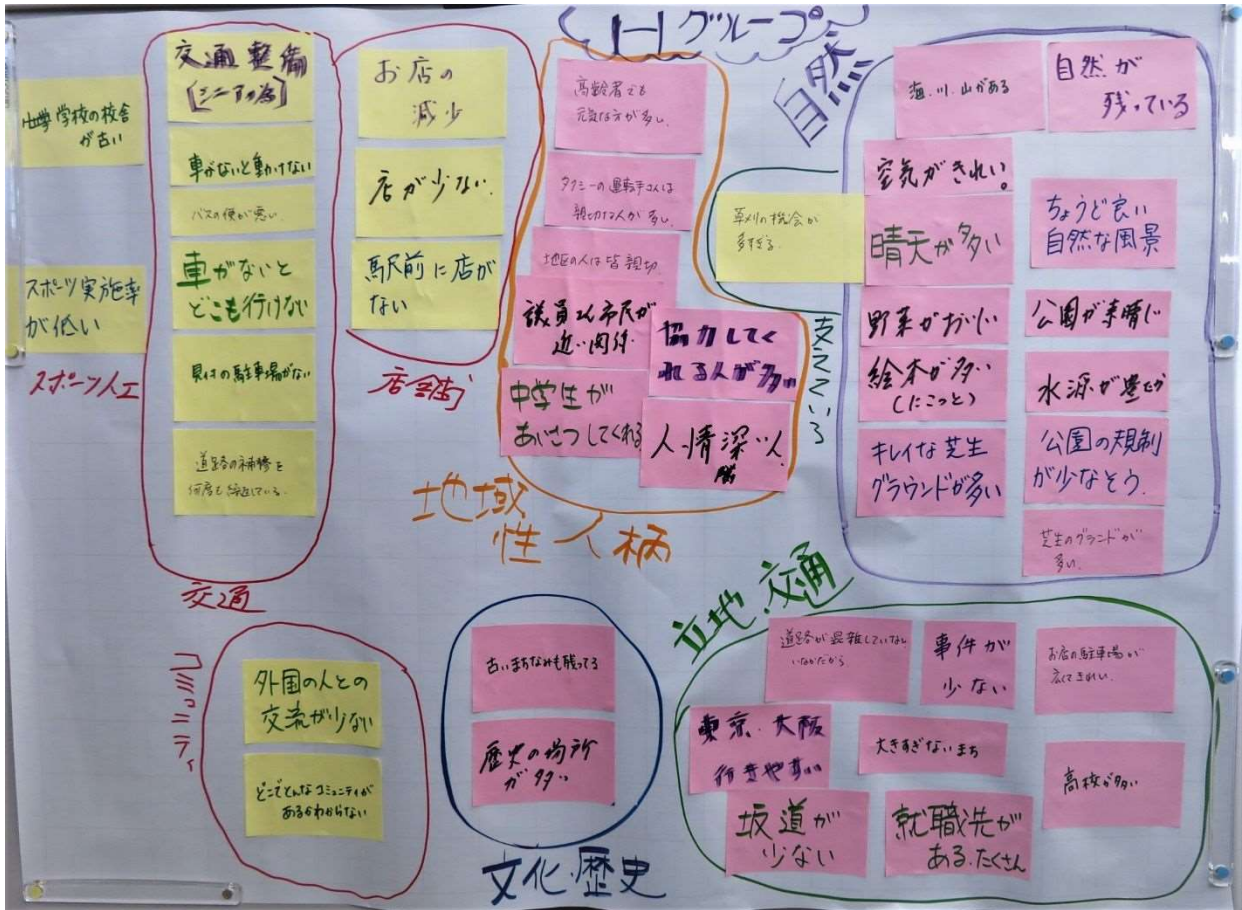 グループ
学校の校舎
が古い
スポーツ実施率
が低い
スポーツ人工
交通整備
[シニアの為]
車がないと動けない
バスの便が悪い
車がないと
どこも行けない
見付の駐車場がない
道路の補修を
何度も繰返している
交通
お店の
減少
店が少ない
駅前に店が
ない
店舗
高齢者でも
元気な方が多い
タクシーの運転手さんは
親切な人が多い
地区の人は皆親切
議員さん市民が
近い関係
協力してく
れる人が多い
中学生が
あいさつしてくれる
人情深い人
地域
性人柄
草刈の機会が
多すぎる
支えている
自然
海.川.山がある
自然が
残っている
空気がきれい。
晴天が多い
ちょうど良い
自然な風景
野菜がおいしい
公園が素晴し
絵本が多い
(にこっと)
水源が豊か
キレイな芝生
グラウンドが多い
公園の規制
が少なそう.
芝生のグランドが
多い.
コミュニティ
外国の人との
交流が少ない
どこでどんなコミュニティが
あるかわからない
古いまちなみも残ってる
歴史の場所
が多い
文化.歴史
立地.交通
道路が混雑していない
事件が
少ない
お店の駐車場が
広くてきれい.
東京.大阪
行きやすい
大きすぎないまち
高校が多い
坂道が
少ない
就職先が
ある.たくさん